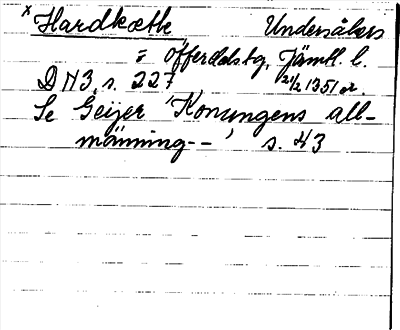 x Hardkætle Undersåkers
= Offerdals tg, Jämtl. l.
DN 3, s. 227 21/2 1351 or.
Se Geijer 'Konungens all-
männing--' s. 43